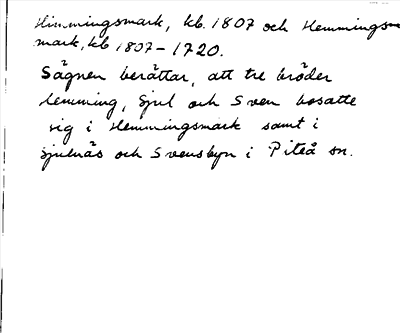 Himmingsmark, kb. 1807 och Hemmings-
mark, kb 1807-1720.
Sägnen berättar, att tre bröder
Hemming, Sjul och Sven bosatte
sig i Hemmingsmark samt i
Sjulnäs och Svensbyn i Piteå sn.